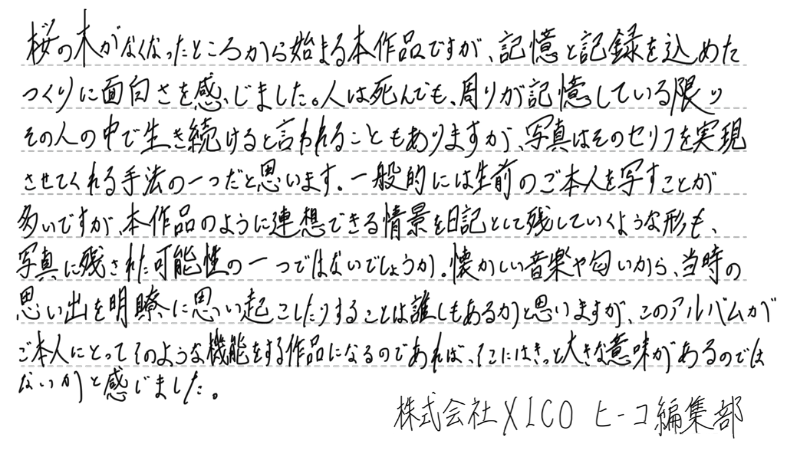 桜の木がなくなったところから始まる本作品ですが、記憶と記録を込めた
つくりに面白さを感じました。人は死んでも、周りが記憶している限り
その人の中で生き続けると言われることもありますが、写真はそのセリフを実現
させてくれる手法の一つだと思います。一般的には生前のご本人を写すことが
多いですが、本作品のように連想できる情景を日記として残していくような形も、
写真に残された可能性の一つではないでしょうか。懐かしい音楽や匂いから、当時の
思い出を明瞭に思い起こしたりすることは誰しもあるかと思いますが、このアルバムが
ご本人にとってそのような機能をする作品になるのであれば、そこにはきっと大きな意味があるのでは
ないかと感じました。
株式会社XICO ヒーコ編集部